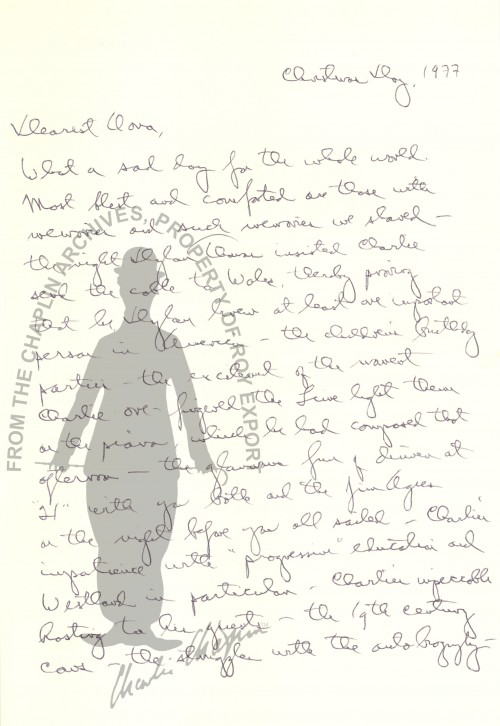 Christmas Day, 1977
Dearest Oona,
What a sad day for the whole world.
Most blest and comforted are those with
memories and such memories we shared –
the night Dylan Thomas insisted Charlie
send the cable to Wales, thereby proving
that he Dylan knew at least one important
person in America – the children's birthday
parties – the excitement of the moment
Charlie one-fingered the Limelight theme
on the piano, which he had composed that
afternoon – the glamorous fun of dinner at
"21" with you both and the Jim Agees
on the night before you all sailed – Charlie's
impatience with "progressive" education and
Westland in particular – Charlie's impeccable
hosting to his guests – the 19th century
cows – the struggles with the autobiography –
FROM THE CHAPLIN ARCHIVES, PROPERTY OF ROY EXPORT
Charlie Chaplin